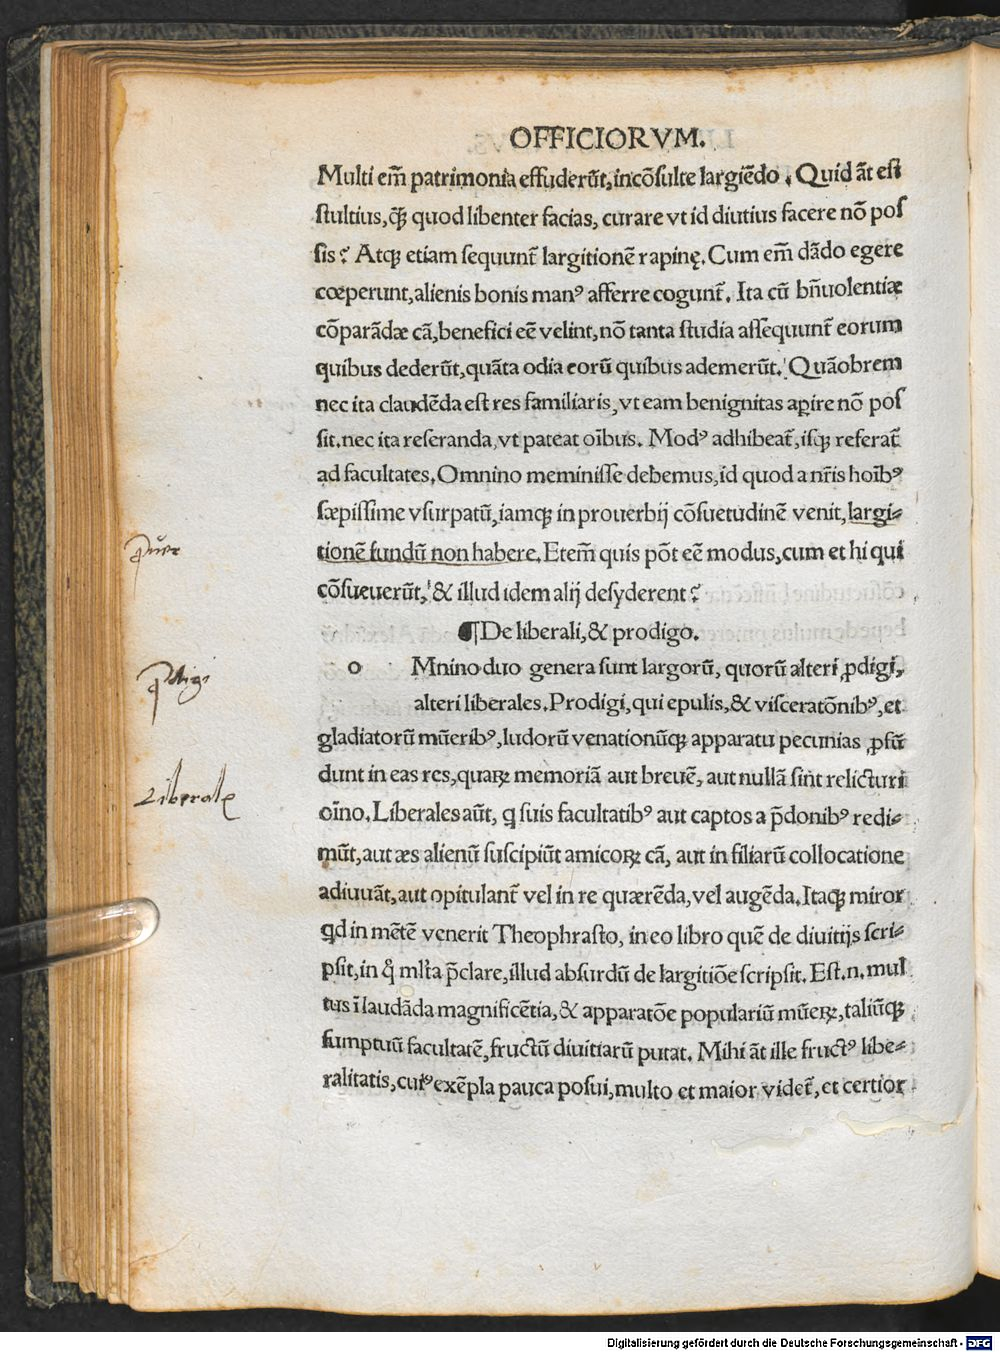 OFFICIORVM.
Multi em̄ patrimonia effuderūt, incōsulte largiēdo. Quid āt est
stultius, q̄ꝫ quod libenter facias, curare vt id diutius facere nō pos
sis? Atqꝫ etiam sequunt̄ largitionē rapinę. Cum em̄ dādo egere
cœperunt, alienis bonis manꝰ afferre cogunt̄. Ita cū bn̄uolentiæ
cōparādæ cā, benefici eē velint, nō tanta studia assequunt̄ eorum
quibus dederūt, quāta odia eorū quibus ademerūt. Quāobrem
nec ita claudēda est res familiaris, vt eam benignitas aꝑire nō pos
sit. nec ita reseranda, vt pateat oībus. Modꝰ adhibeat̄, isqꝫ referat̄
ad facultates. Omnino meminisse debemus, id quod a nr̄is hoībꝰ
sæpissime vsurpatū, iamqꝫ in prouerbij cōsuetudinē venit, largi⸗
tionē fundū non habere. Etem̄ quis pōt eē modus, cum et hi qui
cōsueuerūt, & illud idem alij desyderent?
¶ De liberali, & prodigo.
o Mnino duo genera sunt largorū, quorū alteri ꝓdigi,
alteri liberales. Prodigi, qui epulis, & visceratōnibꝰ, et
gladiatorū mūeribꝰ, ludorū venationūqꝫ apparatu pecunias ꝓfū
dunt in eas res, quaꝝ memoriā aut breuē, aut nullā sint relicturi
oīno. Liberales aūt, q suis facultatibꝰ aut captos a p̄donibꝰ redi⸗
mūt, aut æs alienū suscipiūt amicoꝝ cā, aut in filiarū collocatione
adiuuāt, aut opitulant̄ vel in re quærēda, vel augēda. Itaqꝫ miror
qd in mētē venerit Theophrasto, in eo libro quē de diuitijs scri⸗
psit, in q̊ ml̄ta p̄clare, illud absurdū de largitiōe scripsit. Est .n. mul
tus ī laudāda magnificētia, & apparatōe populariū mūeꝝ, taliūqꝫ
sumptuū facultatē, fructū diuitiarū putat. Mihi āt ille fructꝰ libe⸗
ralitatis, cuiꝰ exēpla pauca posui, multo et maior videt̄, et certior
ꝓdigi
Liberales
Digitalisierung gefördert durch die Deutsche Forschungsgemeinschaft - DFG